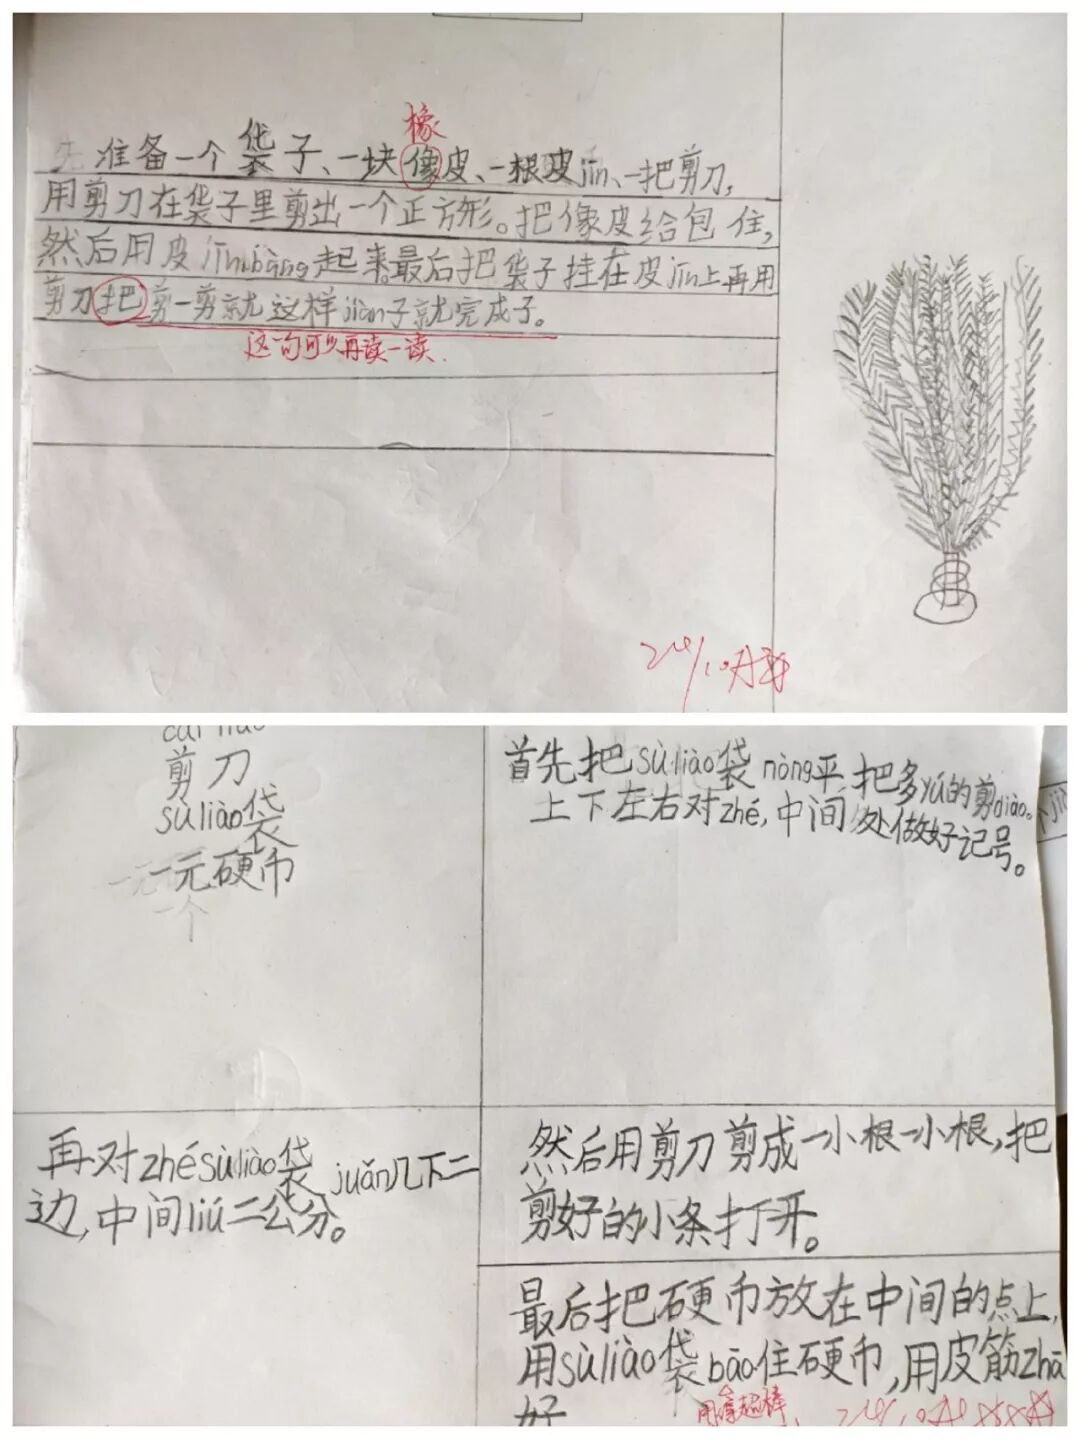 橡
先准备一个袋子、一块像皮、一根皮jīn、一把剪刀,
用剪刀在袋子里剪出一个正方形。把像皮给包住,
然后用皮jīnbǎng起来。最后把袋子挂在皮jīn上再用
剪刀把剪一剪就这样jiàn子就完成子。
这一句可以再读一读.
剪刀
sùliào袋
一元硬币
一个
首先把sùliào袋nòng平把多yú的剪diào。
上下左右对zhé,中间处做好记号。
再对zhésùliào袋juǎn几下二
边,中间liú二公分。
然后用剪刀剪成一小根一小根,把
剪好的小条打开。
最后把硬币放在中间的点上,
用sùliào袋bāo住硬币,用皮筋zhā
好